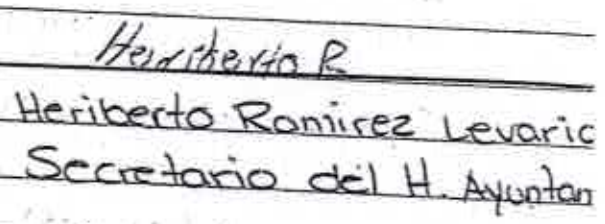 Heriberto R
Heriberto Ramirez Levaric
Secretario del H. Ayuntan